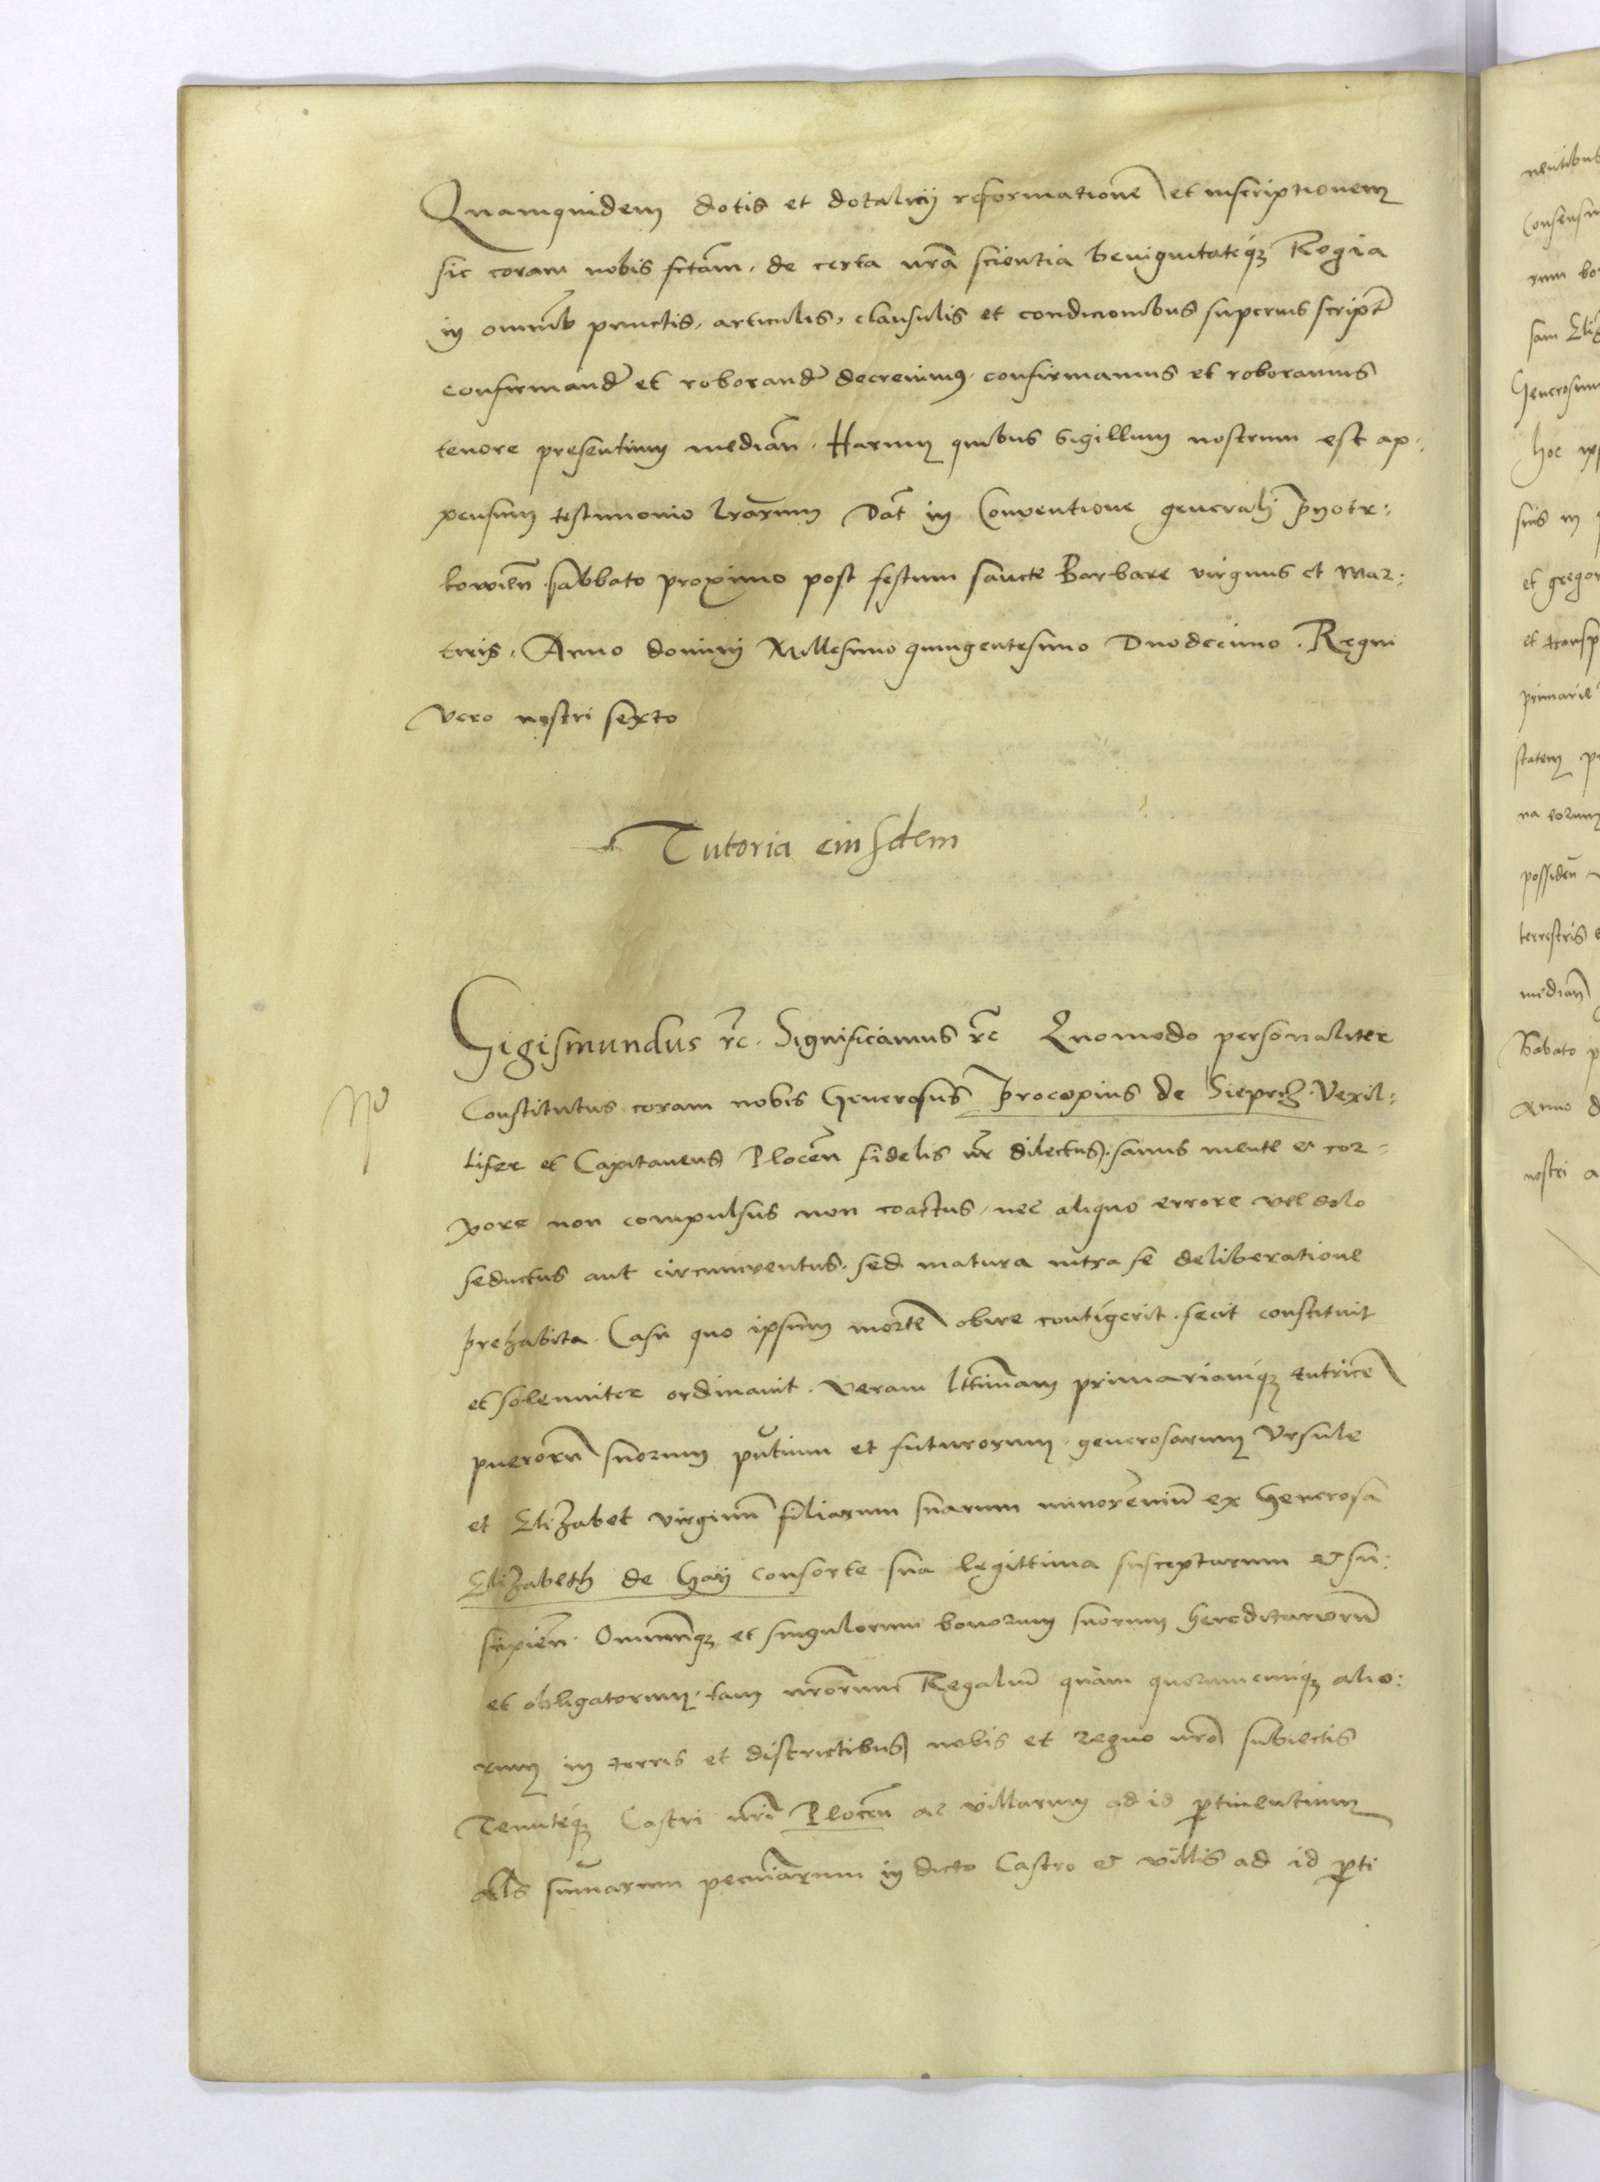 Quamquidem dotis et dotalicij reformationē et inscriptionem
sic coram nobis fctam, de certa nrā scientia benignitateq3 Regia
in omnib punctis, articulis, clausulis et condicionibus superius script
confirmand et roborand decreuimus, confirmamus et roboramus
tenore presentium median. Harum quibus sigillum nostrum est ap:
pensum testimonio lrarum Dat in Conventione generali Pyotr:
kowien sabbato proximo post festum sancte Barbare virginis et mar:
tiris, Anno domini Millesimo quingentesimo Duodecimo. Regni
vero nostri sexto
Tutoria eiusdem
Sigismundus rc. Significamus rc Quomodo personaliter
Constitutus coram nobis Generosus Procopius de Sieprcz. Vexil:
lifer et Capitaneus Plocen fidelis nr dilectus, sanus mente et cor:
pore non compulsus non coactus, nec aliquo errore vel dolo
seductus aut circumventus, sed matura intra se deliberatione
prehabita. Casu quo ipsum mortē obire contigerit, fecit constituit
et solenniter ordinauit. Veram lttimam primariamq3 tutricē
puerorū suorum pntium et futurorum, generosarum Ursule
et Elizabet virginū filiarum suarum minorēniū ex Generosa
Elizabeth de Gaij consorte sua legittima susceptarum et su:
scipien. Omniumq3 et singulorum bonorum suorum hereditariorū
et obligatorum, tam nrorum Regaliū quam quorumcunq3 alio:
rum in terris et districtibus nobis et regno nro subiectis
Tenuteq3 Castri nri Plocen ac villarum ad id ptinentium
als summarum pecuniarum in dicto Castro et villis ad id pti
nentibus
Consensu
sam Eliz
Generosum
hoc
suis in
et gregor
et transp
primarie
statem
na eorum
possiden
terrestris
median
Sabato p
Anno d
nostri